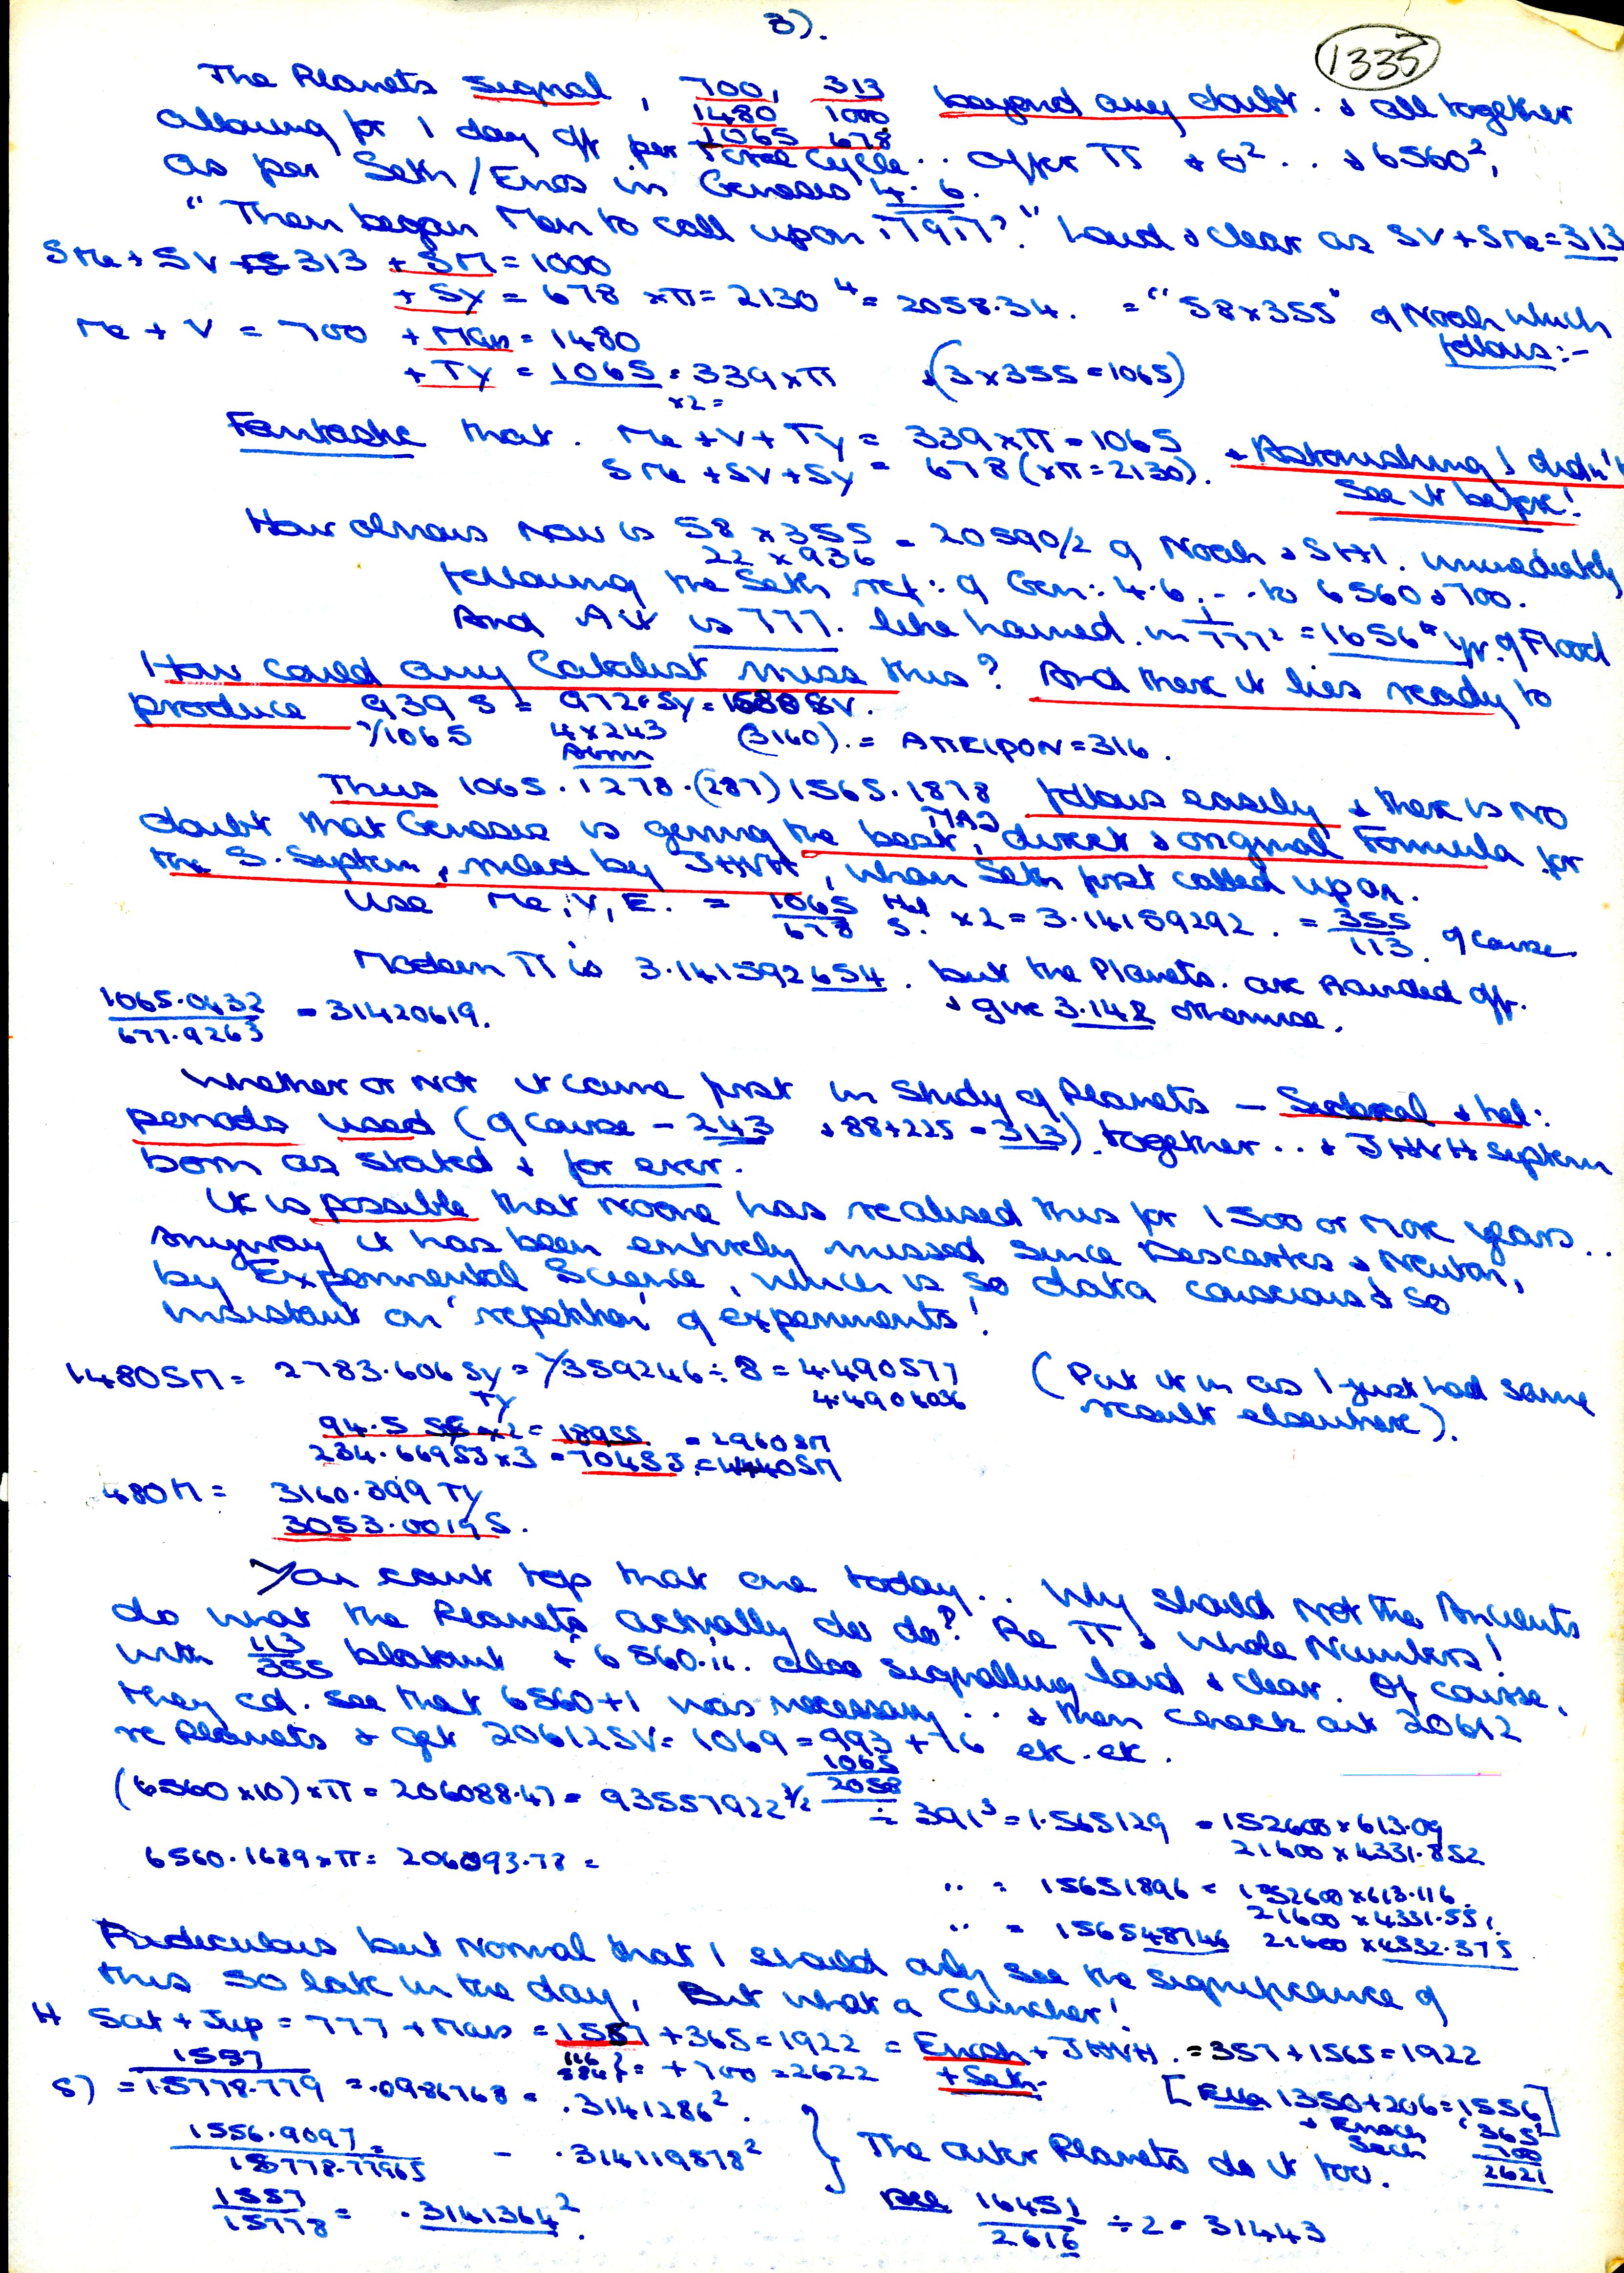 3).
1335
The Planets signal, 700, 313 beyond any doubt. & all together
1480 1000
1065 678
allowing for 1 day off per Total Cycle .. offer π & θ² .. & 6560²,
as per Seth/Enos in Genesis 4.6.
"Then began Men to call upon יהוה?" Loud & clear as SV+SMe=313
SMe+SV 313 + SM = 1000
+ Sy = 678 xπ= 2130 ⁴= 2058.34. = "58x355" of Noah which
follows:-
Me + V = 700 + Mars = 1480
+ Ty = 1065 = 339xπ &(3x355=1065)
x2=
Fantastic that. Me+V+Ty = 339xπ=1065
SMe+SV+Sy = 678(xπ=2130). & Astonishing I didn't
see it before!
How obvious now is 58 x 355 = 20590/2 of Noah & SHI. immediately
22 x 936
following the Seth ref: of Gen: 4.6. .. to 6560 & 700.
And it is 777. like named. in 1/777² = 1656⁴ yr. of Flood
How could any Cabalist miss this? And there it lies ready to
produce 939 S = 972 Sy = 1580 SV.
√1065 4x243 (3160). = ΑΠΕΙΡΟΝ=316.
Thus 1065.1278.(287)1565.1878 follows easily & there is no
doubt that Genesis is giving the best, direct & original Formula for
the S. System, ruled by JHVH, when Seth first called upon.
Use Me, V, E. = 1065/678 Hel/S. x2=3.14159292. = 355/113 of course
Modern π is 3.141592654. but the Planets. are Rounded off.
& give 3.142 otherwise.
1065.0432/677.9263 = 31420619.
Whether or not it came first in study of Planets – Sidereal & hel:
periods used (of course – 243 & 88+225=313) together .. & JHVH system
born as stated & for ever.
It is possible that noone has realised this for 1500 or more years ..
Anyway it has been entirely missed since Descartes & Newton,
by Experimental Science, which is so data conscious & so
insistant on 'repetition' of experiments!
1480SM = 2783.606 Sy = √359246÷8 = 4.490577 (Put it in as I just had same
Ty 4.490606 result elsewhere).
94.5 SS x2= 189SS = 2960SM
234.669SJ x3 = 704SJ = 4440SM
480M = 3160.399 Ty
3053.0019 S.
You cant top that one today.. Why should not the Ancients
do what the Planets actually do do? Re π & whole Numbers!
with 113/355 blatant & 6560.ii. also signalling loud & clear. Of course,
they cd. see that 6560+1 was necessary .. & then check out 20612
re Planets & get 20612SV= 1069 = 993+76 etc. etc.
1065
2058
(6560x10)xπ = 206088.47 = 93557922½ ÷ 391³ = 1.565129 = 152600 x 613.09
21600 x 4331.852
6560.1689xπ= 206093.78 =
.. = 15651896 = 152600 x 613.116
21600 x 4331.551
.. = 156548746 21600 x 4332.375
Rediculous but normal that I should only see the significance of
this so late in the day, But what a Clincher!
H Sat + Jup = 777 + Mars = 1557 + 365 = 1922 = Enosh + JHVH. = 357 + 1565 = 1922
+ 700 = 2622 + Seth.
S) = 1557/15778.779 = .0986768 = .3141286². [Eva 1350+206=1556]
+ Enoch 365
Seth 700
2621
1556.9097/15778.77965 = .314119878² } The outer Planets do it too.
1557/15778 = .3141364². See 16451/2616 ÷ 2 = 31443